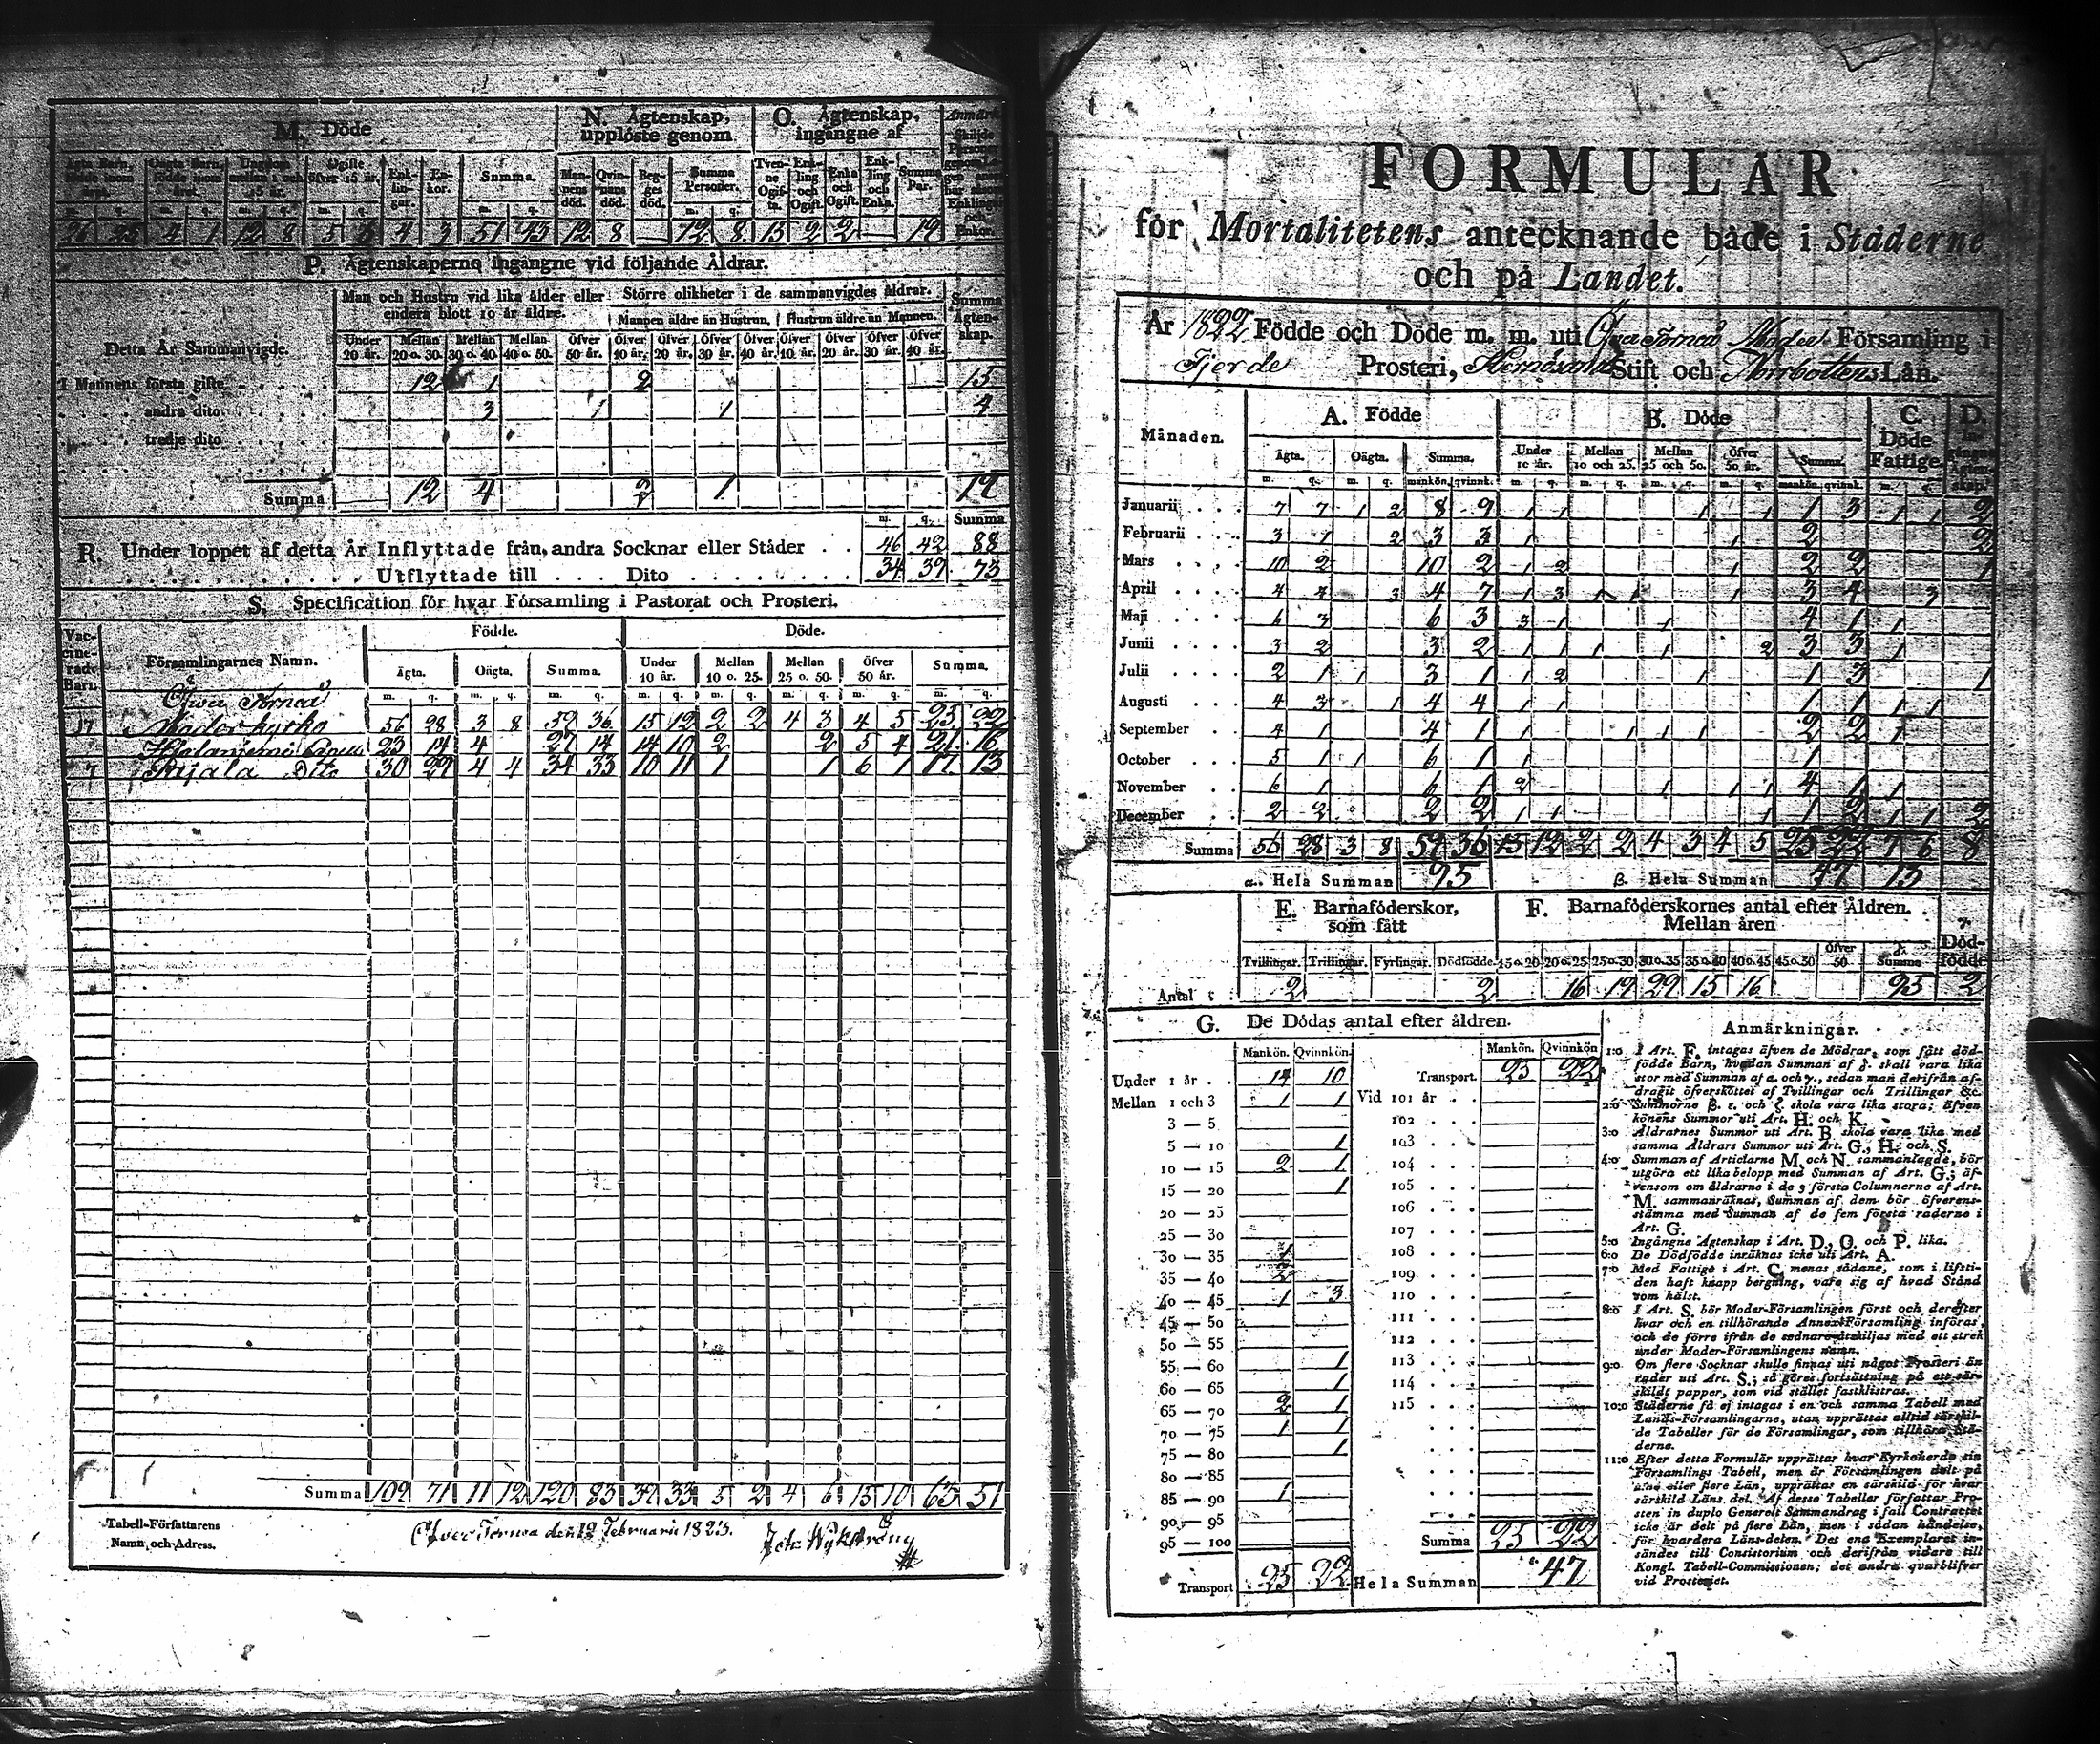 M. Döde
N. Ägtenskap, upplöste genom
O. Ägtenskap, ingångne af
Ägta Barn, Oägta Barn, Ungdom Ogifte öfver 15 år. Enk-lin-gar. En-kor. Summa. Man-nens död. Qvin-nans död. Beg-ges död. Summa Personer. Tven-ne Ogif-ta. Enk-ling och Ogift. Enka och Ogift. Enk-ling och Enka. Summa Par.
26 25 4 1 12 8 5 6 4 3 51 43 12 8 — 12 8 15 2 2 — 19
P. Ägtenskaperne ingångne vid följande Åldrar.
Man och Hustru vid lika ålder eller endera blott 10 år äldre.
Större olikheter i de sammanvigdes åldrar.
Mannen äldre än Hustrun. Hustrun äldre än Mannen.
Summa Ägten-skap.
Detta År Sammanvigde.
Under 20 år. Mellan 20 o. 30. Mellan 30 o. 40. Mellan 40 o. 50. Öfver 50 år. Öfver 10 år. Öfver 20 år. Öfver 30 år. Öfver 40 år. Öfver 10 år. Öfver 20 år. Öfver 30 år. Öfver 40 år.
I Mannens första gifte 12 1 2 15
andra dito 3 1 1 4
tredje dito
Summa 12 4 2 1 19
m. q. Summa
R. Under loppet af detta År Inflyttade från andra Socknar eller Städer . . 46 42 88
Utflyttade till . . . . Dito 34 39 73
S. Specification för hvar Församling i Pastorat och Prosteri.
Vac-cine-rade Barn.
Församlingarnes Namn.
Födde. Döde.
Ägta. Oägta. Summa. Under 10 år. Mellan 10 o. 25. Mellan 25 o. 50. Öfver 50 år. Summa.
m. q. m. q. m. q. m. q. m. q. m. q. m. q. m. q.
Öfver Torneå
17 Moderkyrko 56 28 3 8 59 36 15 12 2 2 4 3 4 5 25 22
Hietaniemi Capell 23 14 4 27 14 14 10 2 2 5 4 21 16
7 Pajala Dito 30 29 4 4 34 33 10 11 1 1 6 1 17 13
Summa 109 71 11 12 120 83 39 33 5 2 4 6 15 10 63 51
Tabell-Författarens Namn och Adress.
Öfver Torneå den 19 Februarii 1823.
Joh: Wykström
FORMULÄR
för Mortalitetens antecknande både i Städerne
och på Landet.
År 1822 Födde och Döde m. m. uti Öfver Torneå Moder Församling i
Fjerde Prosteri, Hernösands Stift och Norrbottens Län.
Månaden.
A. Födde
B. Döde
C. Döde Fattige.
D.
Ägta. Oägta. Summa. Under 10 år. Mellan 10 och 25. Mellan 25 och 50. Öfver 50 år. Summa.
m. q. m. q. mankön. qvinnk. m. q. m. q. m. q. m. q. mankön. qvinnk. m. q.
Januarii 7 7 1 2 8 9 1 1 1 1 1 3 1 1 2
Februarii 3 1 2 3 3 1 1 2 2
Mars 10 2 10 2 1 2 1 2 2 1
April 4 4 3 4 7 1 3 1 1 1 3 4 3
Maji 6 3 6 3 3 1 1 4 1 1
Junii 3 2 3 2 1 1 1 1 2 3 3 1
Julii 2 1 1 3 1 1 2 1 1 3 1
Augusti 4 3 1 4 4 1 1 1 1 1 1
September 4 1 4 1 1 1 1 1 2 2 1
October 5 1 1 6 1 1 1
November 6 1 6 1 2 1 1 1 4 1 1
December 2 2 2 2 1 1 1 1 2 1 1 2
Summa 56 28 3 8 59 36 15 12 2 2 4 3 4 5 25 22 7 6 8
α. Hela Summan 95 β. Hela Summan 47 13
E. Barnaföderskor, som fått
F. Barnaföderskornes antal efter Åldren. Mellan åren
γ. Död-födde
Tvillingar. Trillingar. Fyrlingar. Dödfödde. 15 o. 20 20 o. 25 25 o. 30 30 o. 35 35 o. 40 40 o. 45 45 o. 50 Öfver 50 Summa
Antal 2 2 16 19 29 15 16 95 2
G. De Dödas antal efter åldren.
Mankön. Qvinnkön. Mankön. Qvinnkön
Under 1 år 14 10
Mellan 1 och 3 1 1
3 — 5
5 — 10 1
10 — 15 2 1
15 — 20 1
20 — 25
25 — 30
30 — 35 1
35 — 40 2
40 — 45 1 3
45 — 50
50 — 55
55 — 60 1
60 — 65 1
65 — 70 2 1
70 — 75 1 1
75 — 80 1
80 — 85
85 — 90 1
90 — 95
95 — 100
Transport 25 22
Transport. 25 22
Vid 101 år
102
103
104
105
106
107
108
109
110
111
112
113
114
115
Summa 25 22
Hela Summan 47
Anmärkningar.
1:o I Art. F. intagas äfven de Mödrar, som fått död-
födde Barn, hvadan Summan af δ. skall vara lika
stor med Summan af α. och γ., sedan man derifrån af-
dragit öfverskottet af Tvillingar och Trillingar &c.
2:o Summorne β. ε. och ζ. skola vara lika stora; äfven
könens Summor uti Art. H. och K.
3:o Åldrarnes Summor uti Art. B. skola vara lika med
samma Åldrars Summor uti Art. G., H. och S.
4:o Summan af Articlarne M. och N. sammanlagde, bör
utgöra ett lika belopp med Summan af Art. G.; äf-
vensom om åldrarne i de 3 första Columnerne af Art.
M. sammanräknas, Summan af dem bör öfverens-
stämma med Summan af de fem första raderne i
Art. G.
5:o Ingångne Ägtenskap i Art. D., O. och P. lika.
6:o De Dödfödde inräknas icke uti Art. A.
7:o Med Fattige i Art. C. menas sådane, som i lifsti-
den haft knapp bergning, vare sig af hvad Stånd
som hälst.
8:o I Art. S. bör Moder-Församlingen först och derefter
hvar och en tillhörande Annex-Församling införas,
och de förre ifrån de sednare åtskiljas med ett strek
under Moder-Församlingens namn.
9:o Om flere Socknar skulle finnas uti något Prosteri än
rader uti Art. S.; så göres fortsättning på ett sär-
skildt papper, som vid stället fastklistras.
10:o Städerne få ej intagas i en och samma Tabell med
Lands-Församlingarne, utan upprättas alltid särskil-
de Tabeller för de Församlingar, som tillhöra Stä-
derne.
11:o Efter detta Formulär upprättar hvar Kyrkoherde sin
Församlings Tabell, men är Församlingen delt på
tvne eller flere Län, upprättas en särskild för hvar
särskild Läns del. Af desse Tabeller författar Pro-
sten in duplo Generelt Sammandrag i fall Contractet
icke är delt på flere Län, men i sådan händelse,
för hvardera Läns-delen. Det ena Exemplaret in-
sändes till Consistorium och derifrån vidare till
Kongl. Tabell-Commissionen; det andra qvarblifver
vid Prosteriet.